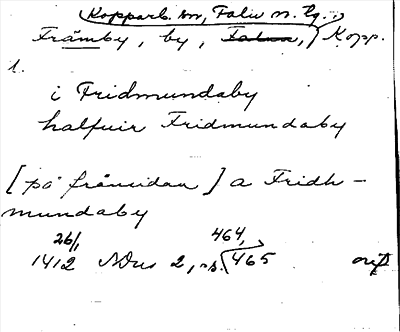 Kopparb. län, Falu n. tg.,
Främby, by, Falun, Kopp.
1.
i Fridmundaby
halfuir Fridmundaby
[på främsidan] a Fridh-
mundaby
26/1 464,
1412 NDus 2, ns. 465 orig